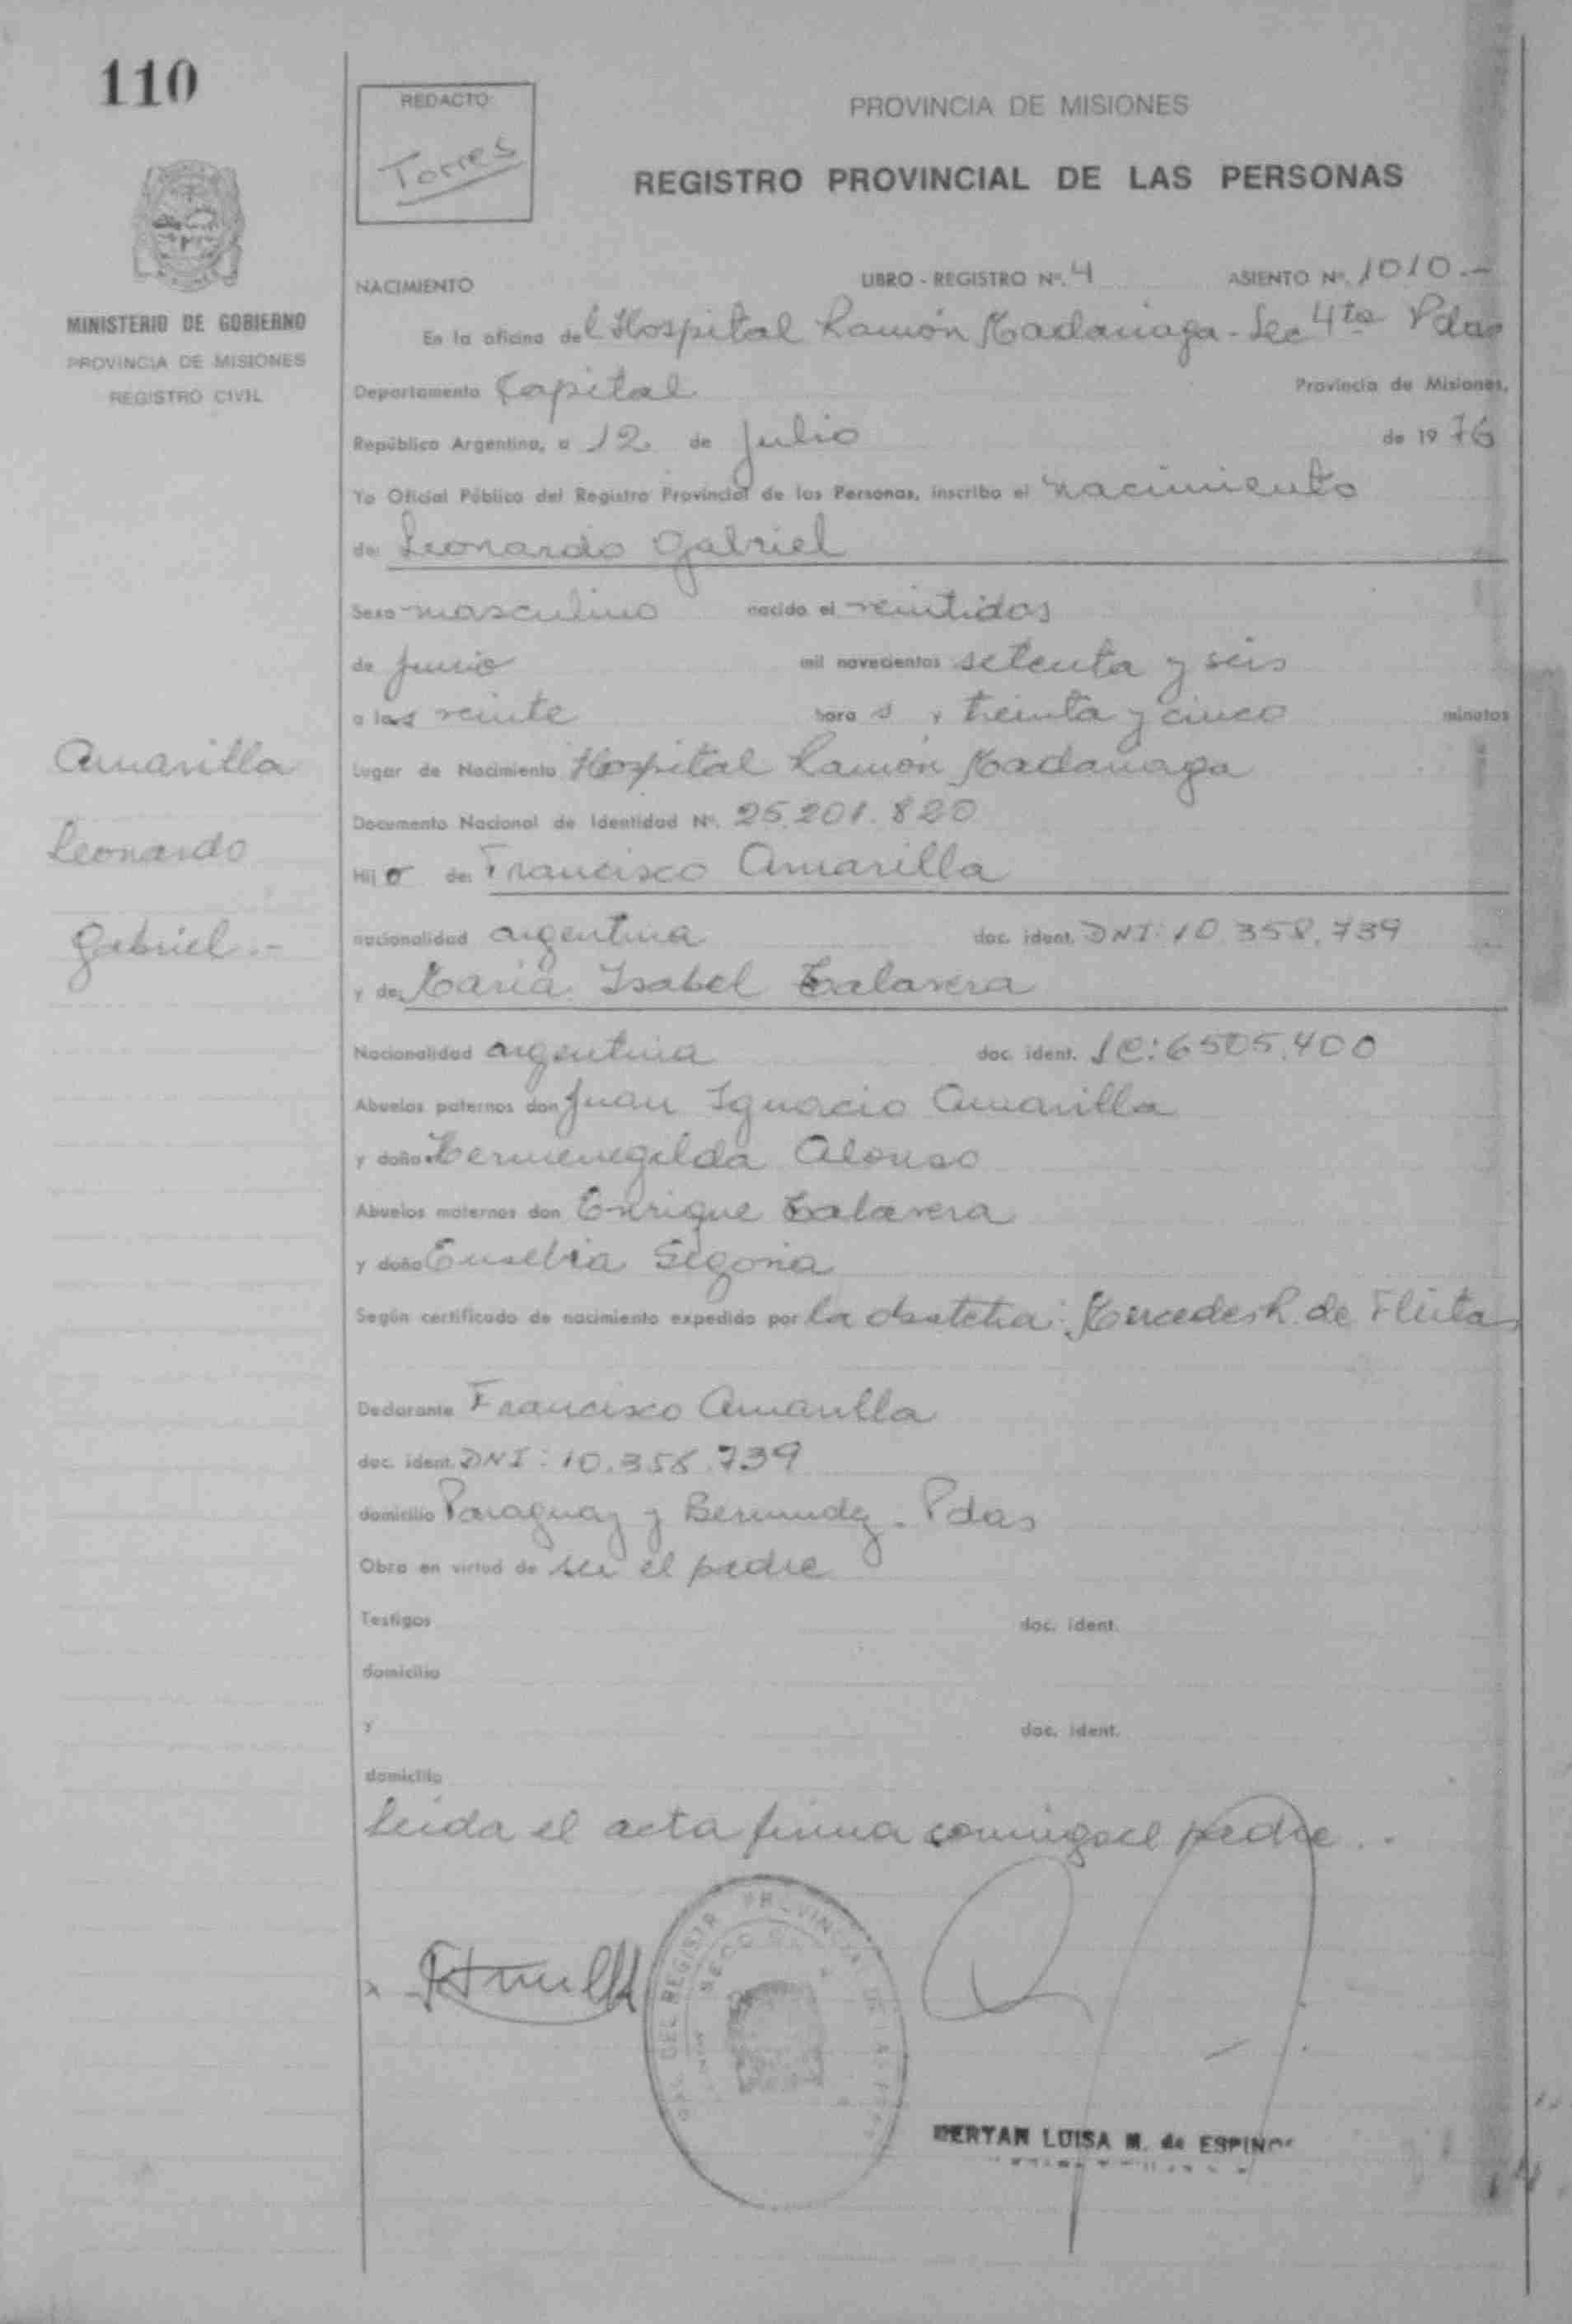 110
REDACTO
Torres
PROVINCIA DE MISIONES
REGISTRO PROVINCIAL DE LAS PERSONAS
MINISTERIO DE GOBIERNO
PROVINCIA DE MISIONES
REGISTRO CIVIL
NACIMIENTO LIBRO - REGISTRO Nº. 4 ASIENTO Nº. 1010.-
En la oficina del Hospital Ramón Madariaga - Sec 4ta Pdas
Departamento Capital Provincia de Misiones,
República Argentina, a 12 de Julio de 1976
Yo Oficial Público del Registro Provincial de las Personas, inscribo el nacimiento
de: Leonardo Gabriel
Sexo masculino nacido el veintidos
de junio mil novecientos setenta y seis
a las veinte hora s y treinta y cinco minutos
Amarilla
Leonardo
Gabriel.-
Lugar de Nacimiento Hospital Ramón Madariaga
Documento Nacional de Identidad Nº. 25.201.820
Hijo de: Francisco Amarilla
nacionalidad argentina doc. ident. DNI: 10.358.739
y de: Maria Isabel Talavera
Nacionalidad argentina doc. ident. LC: 6505.400
Abuelos paternos don Juan Ignacio Amarilla
y doña Hermenegilda Alonso
Abuelos maternos don Enrique Talavera
y doña Eusebia Segovia
Según certificado de nacimiento expedido por la obstetra: Mercedes R. de Fleitas
Declarante Francisco Amarilla
doc. ident. DNI: 10.358.739
domicilio Paraguay y Bermudez - Pdas
Obra en virtud de ser el padre
Testigos doc. ident.
domicilio
y doc. ident.
domicilio
Leida el acta firma conmigo el padre.-
x
DEL REGISTR PROVINCIA DE LAS
SECC
LUISA M. de ESPINO